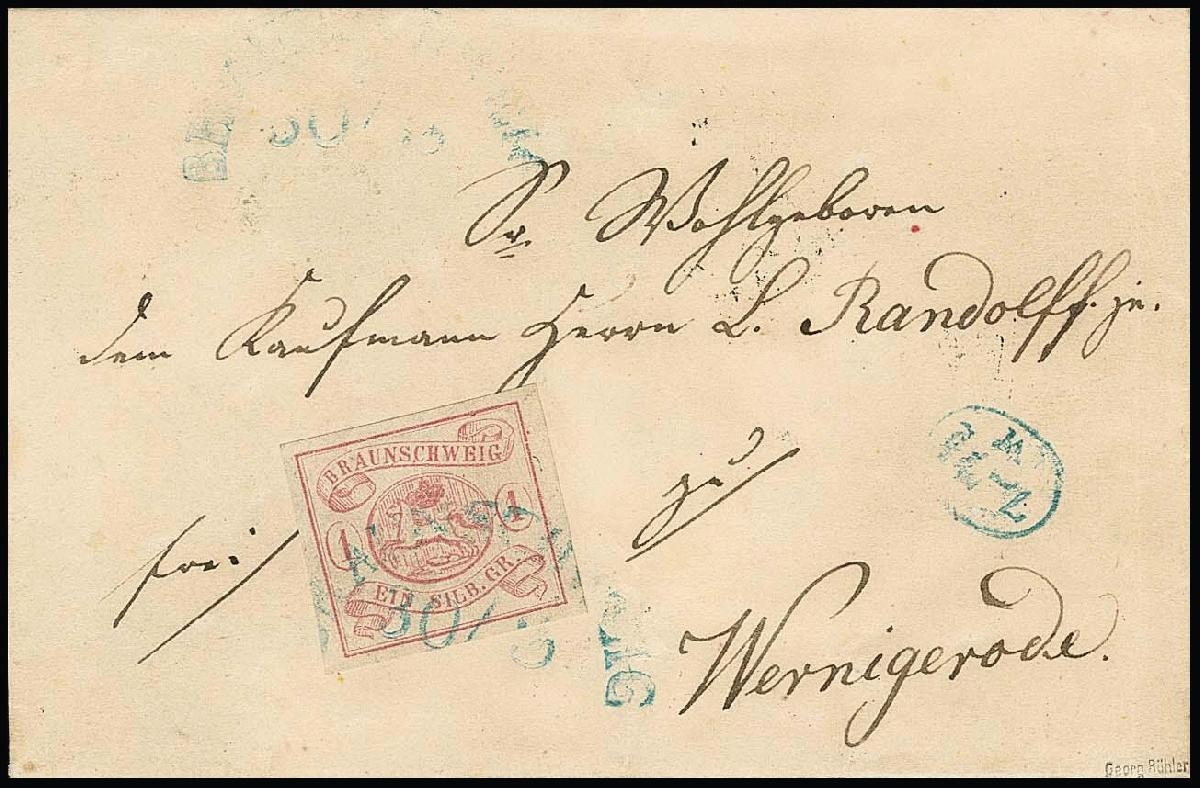 30/
Sr Wohlgeboren
dem Kaufmann Herrn L. Randolff. jr.
BRAUNSCHWEIG
1 1
EIN SILB. GR.
30/
frei
zu
Wernigerode.
Georg Bühler